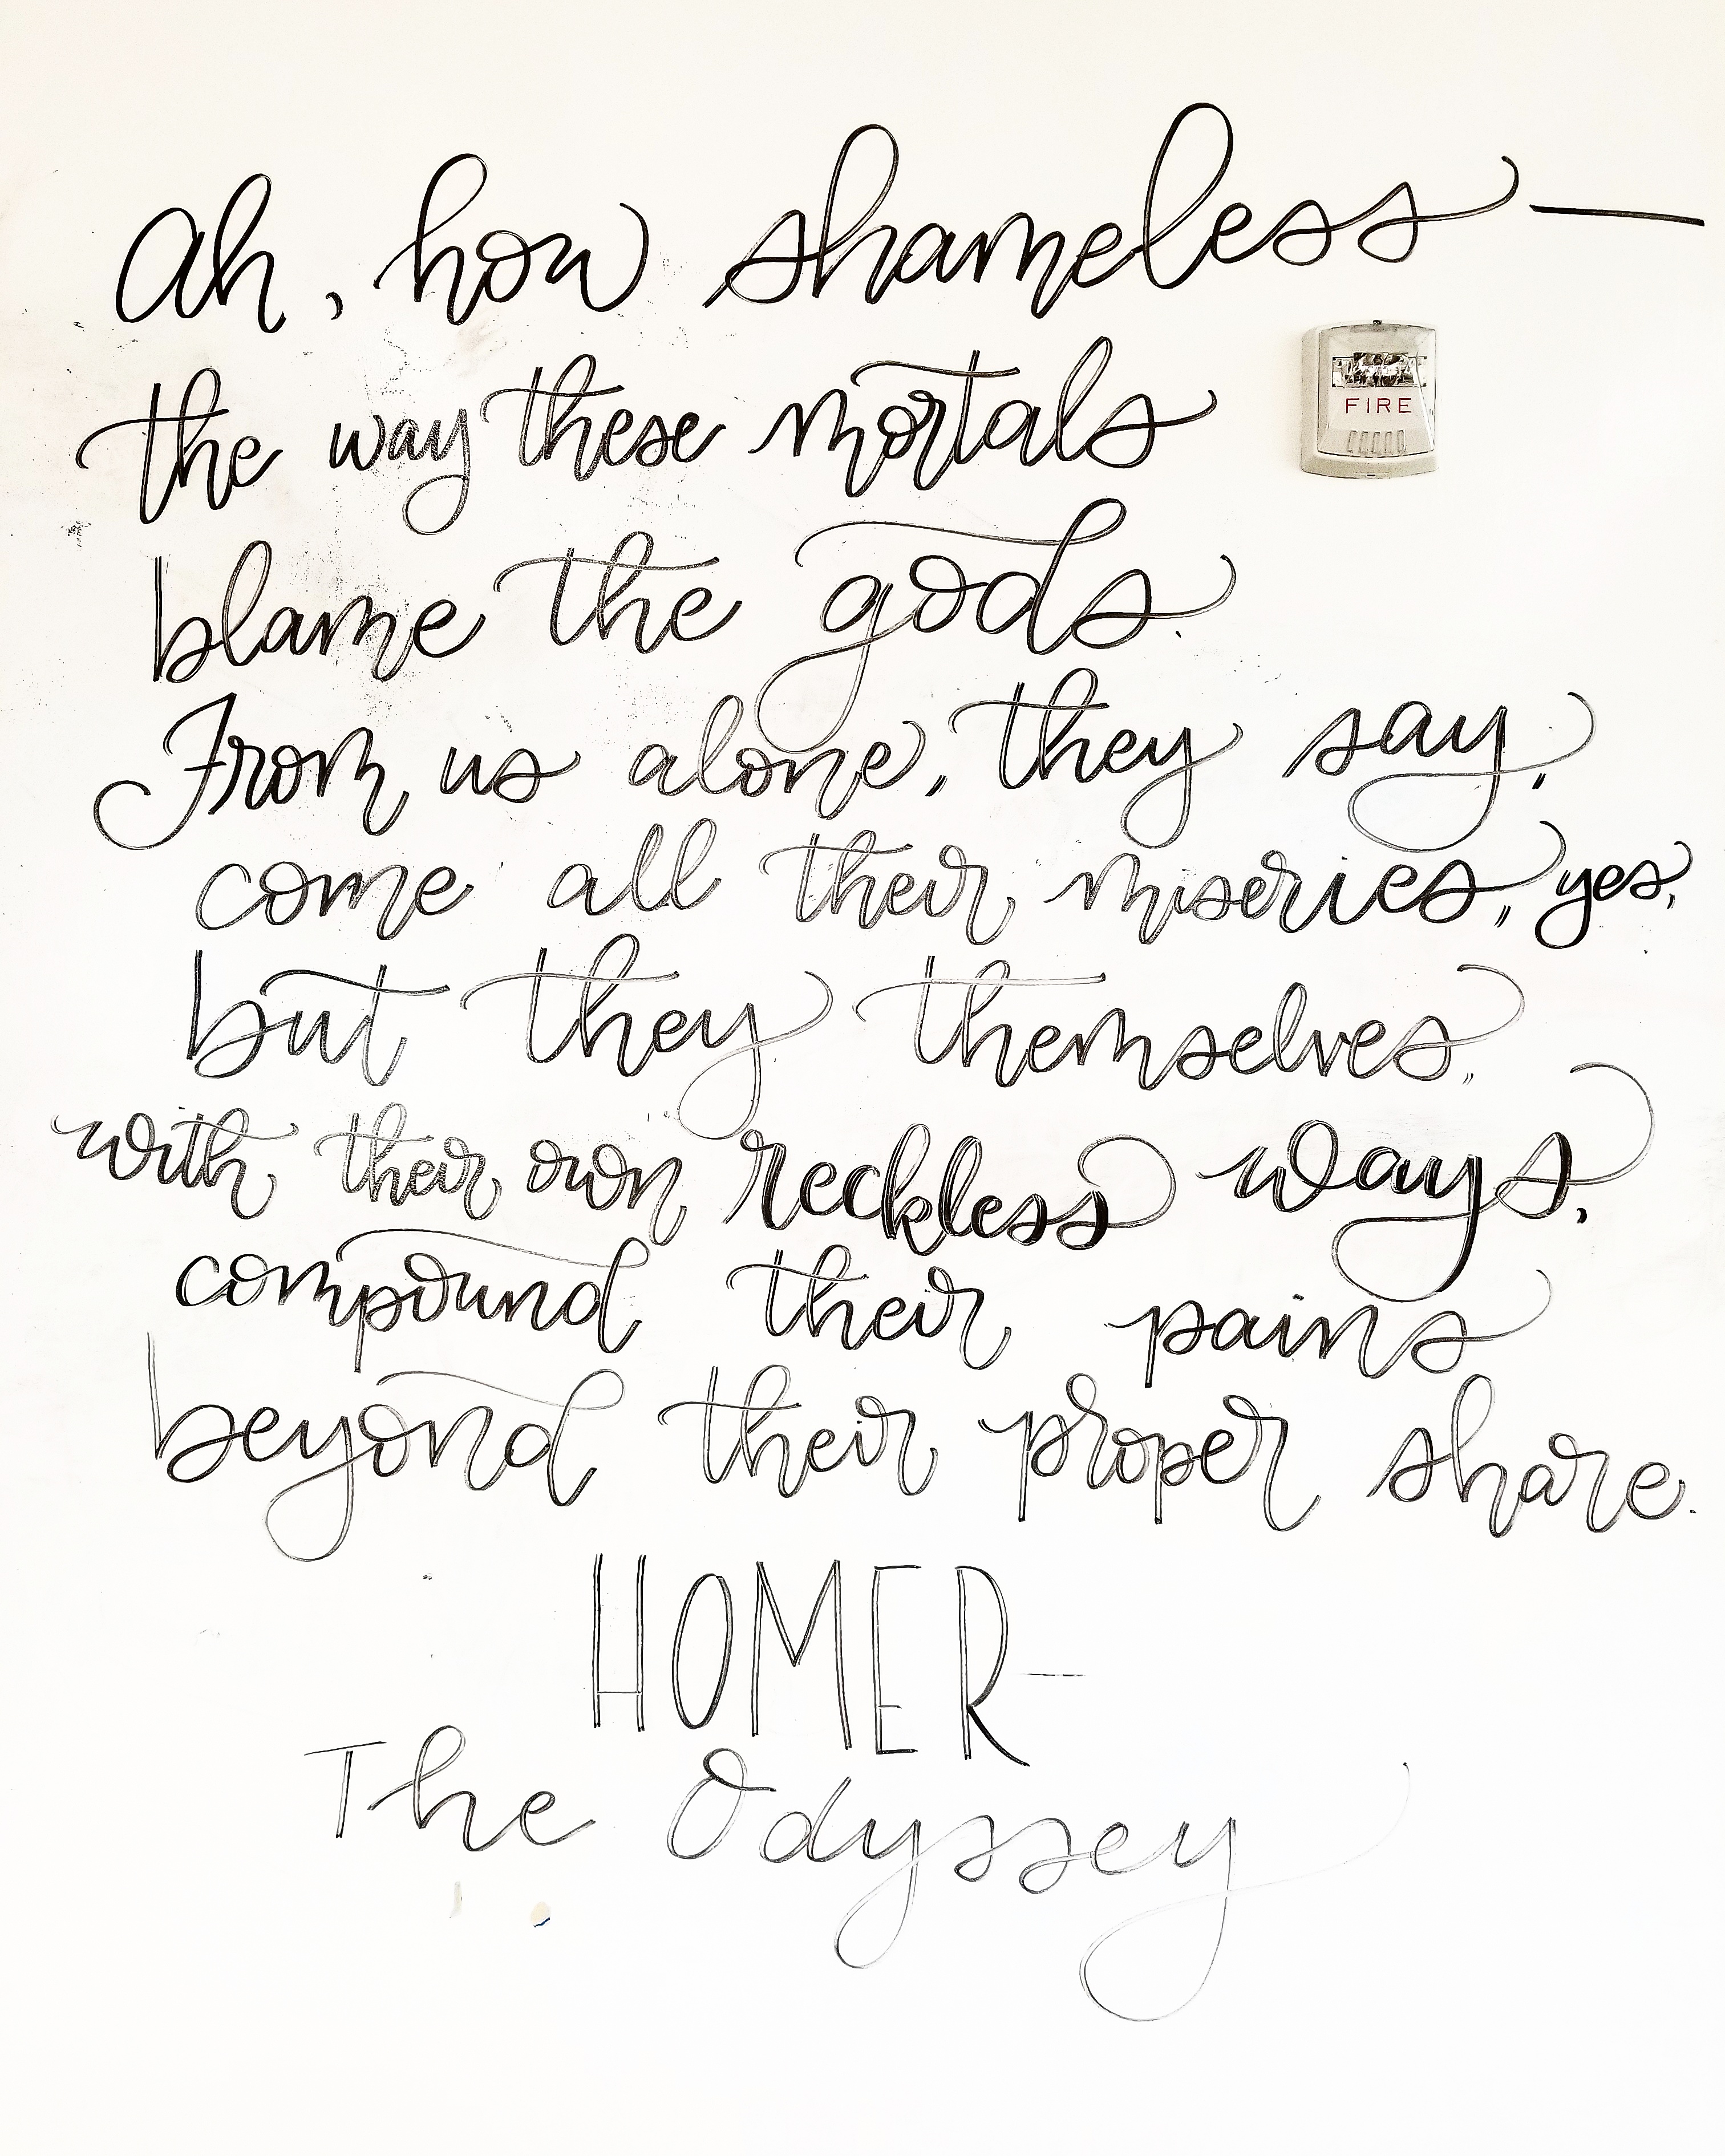 Ah, how shameless —
the way these mortals
FIRE
blame the gods.
From us alone, they say,
come all their miseries, yes,
but they themselves,
with their own reckless ways,
compound their pains
beyond their proper share.
HOMER-
The Odyssey